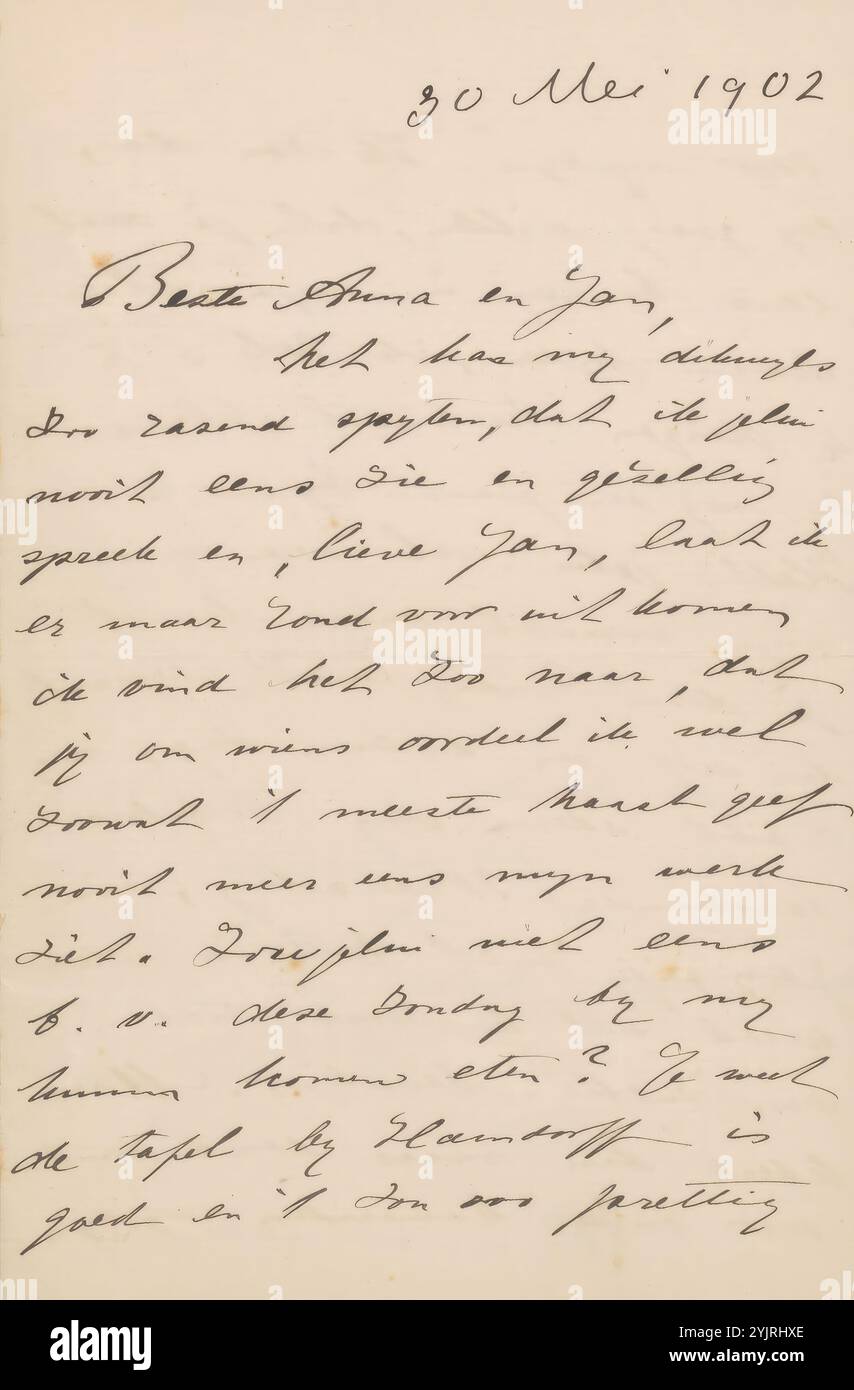 30 Mei 1902
Beste Anna en Jan,
het kan my dikwyls
zoo razend spyten, dat ik jelui
nooit eens zie en gezellig
spreek en, lieve Jan, laat ik
er maar rond voor uit komen
ik vind het zoo naar, dat
jy om wiens oordeel ik wel
zoowat 't meeste haast geef
nooit meer eens myn werk
ziet. Zou jelui niet eens
b. v. deze Zondag by my
kunnen komen eten? Je weet
de tafel by Hamdorff is
goed en 't zou zoo prettig
alamy
Image ID: 2YJRHXE
www.alamy.com